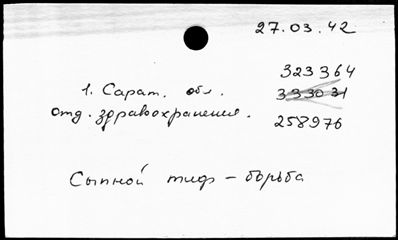 27.03.42
323364
1. Сарат. обл. 333031
отд. здравоохранения. 258976
Сыпной тиф – борьба